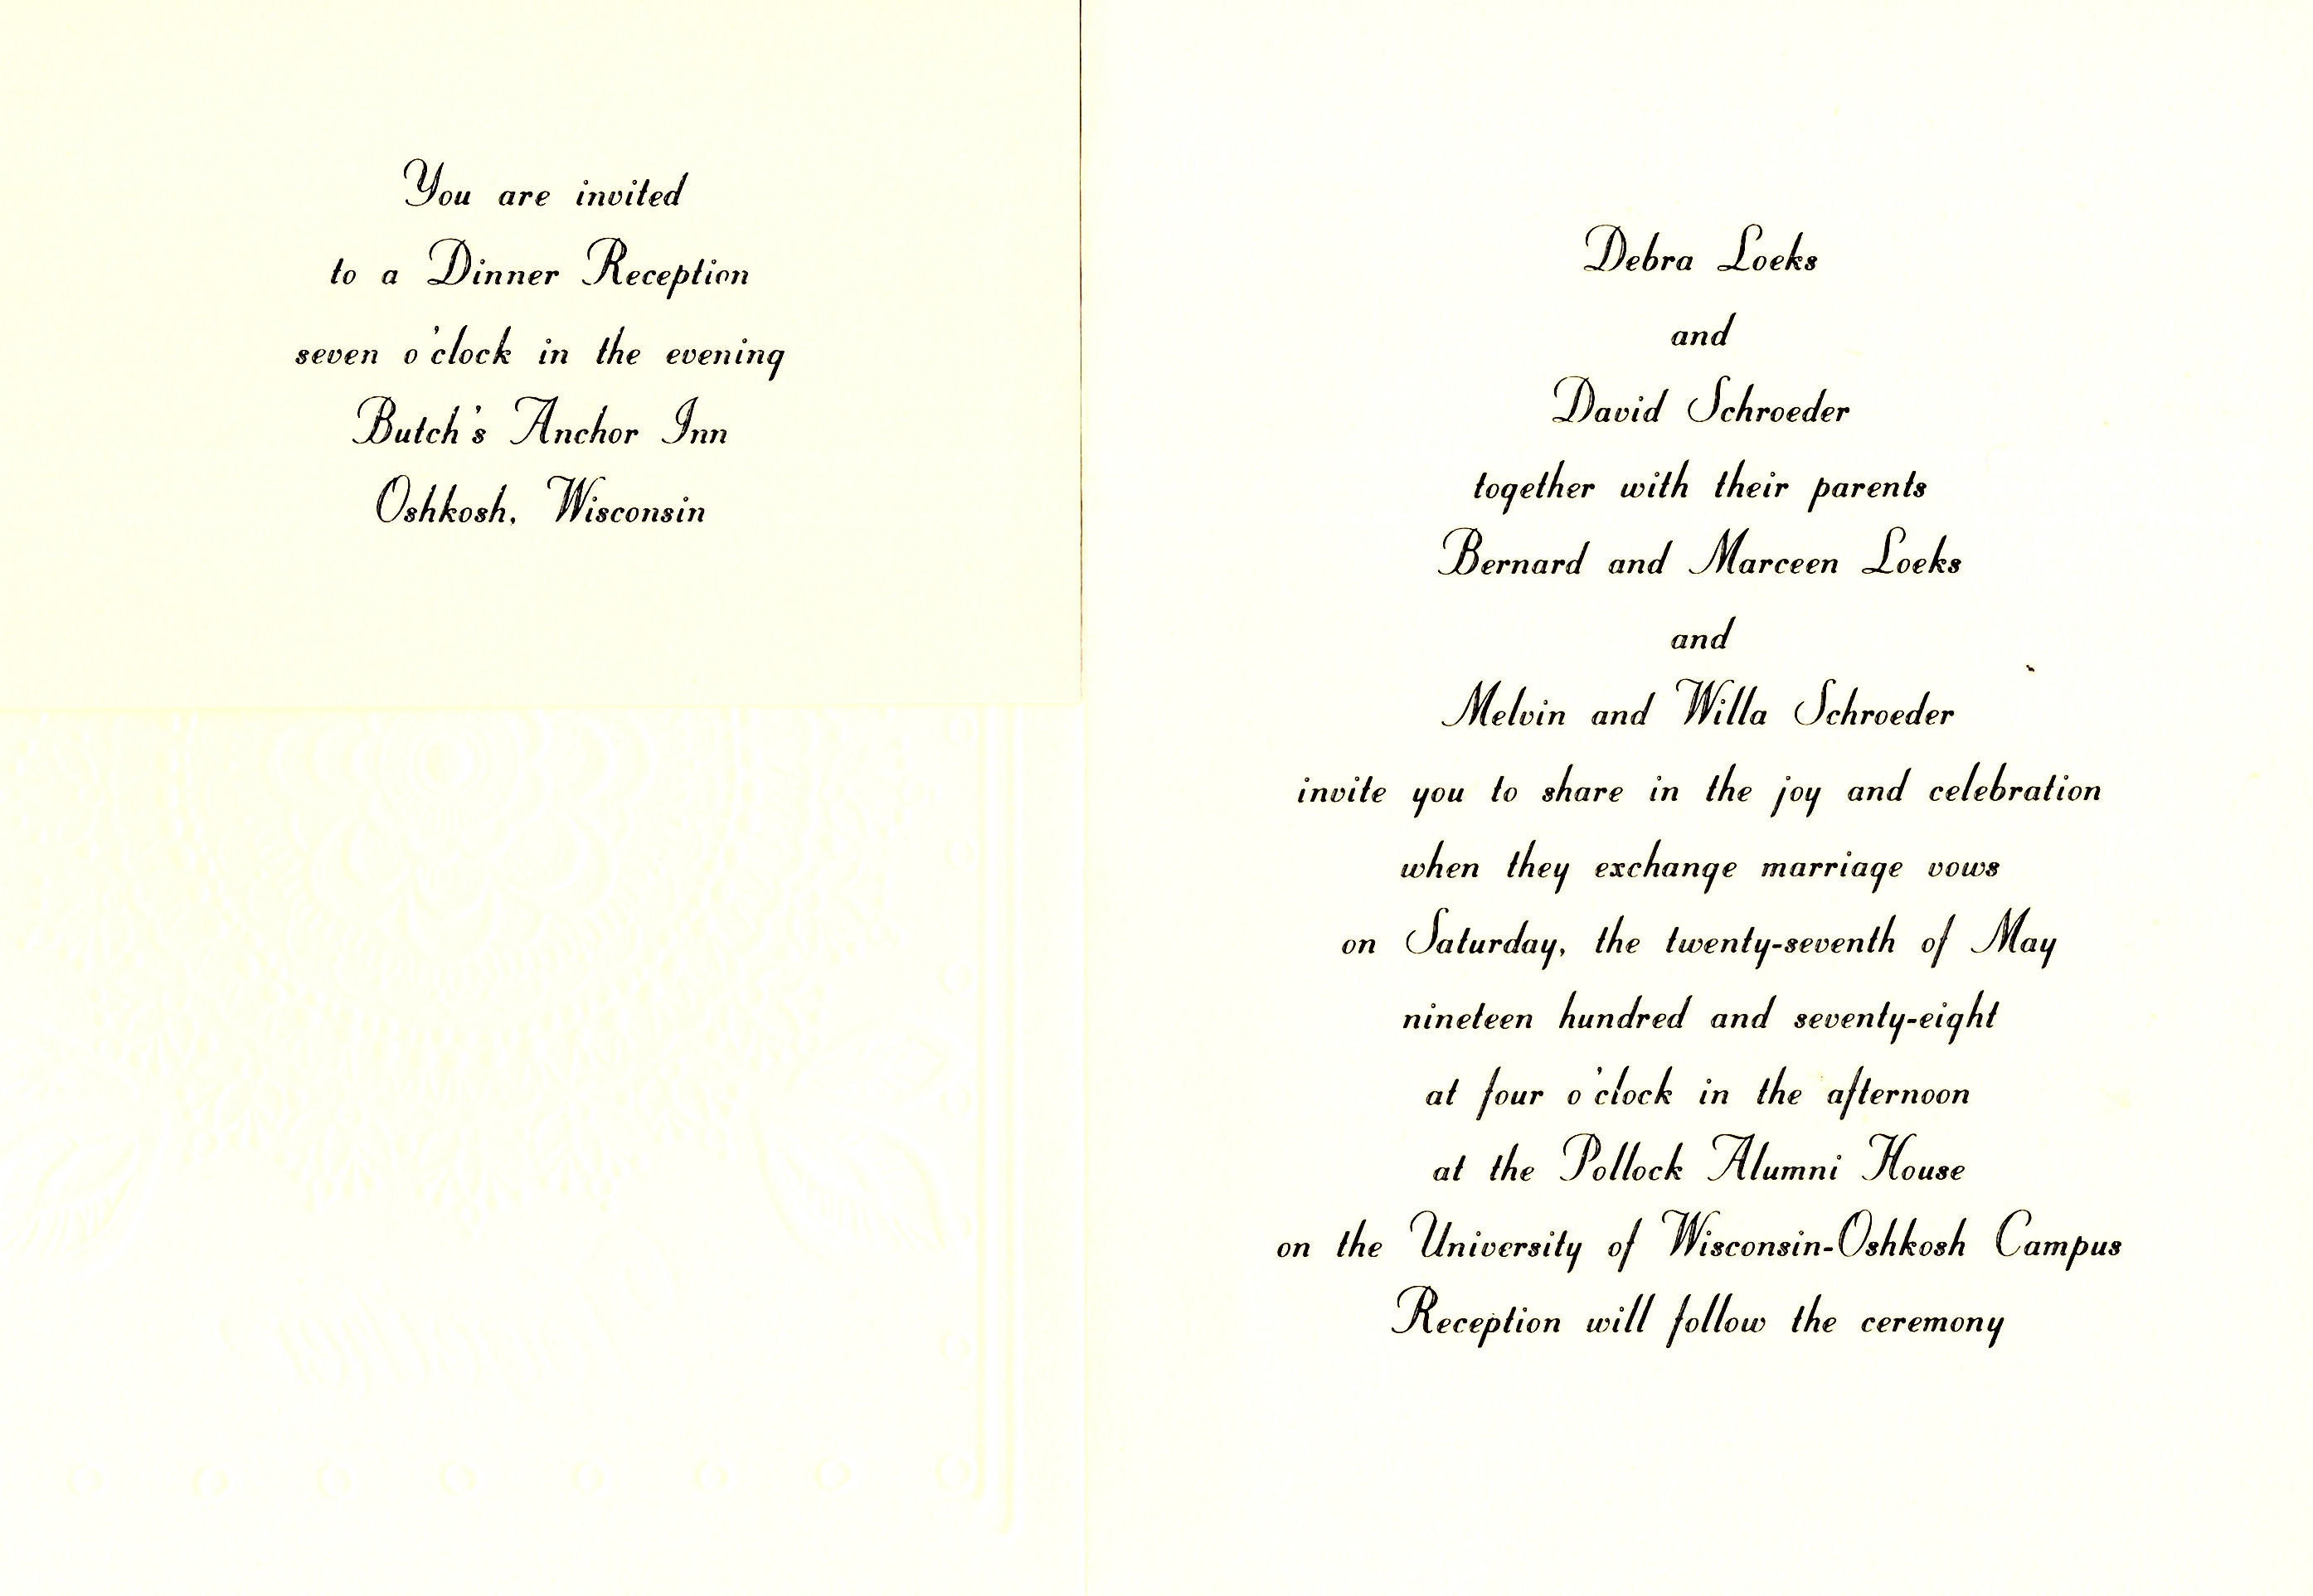 You are invited
to a Dinner Reception
seven o'clock in the evening
Butch's Anchor Inn
Oshkosh, Wisconsin
Debra Loeks
and
David Schroeder
together with their parents
Bernard and Marceen Loeks
and
Melvin and Willa Schroeder
invite you to share in the joy and celebration
when they exchange marriage vows
on Saturday, the twenty-seventh of May
nineteen hundred and seventy-eight
at four o'clock in the afternoon
at the Pollock Alumni House
on the University of Wisconsin-Oshkosh Campus
Reception will follow the ceremony